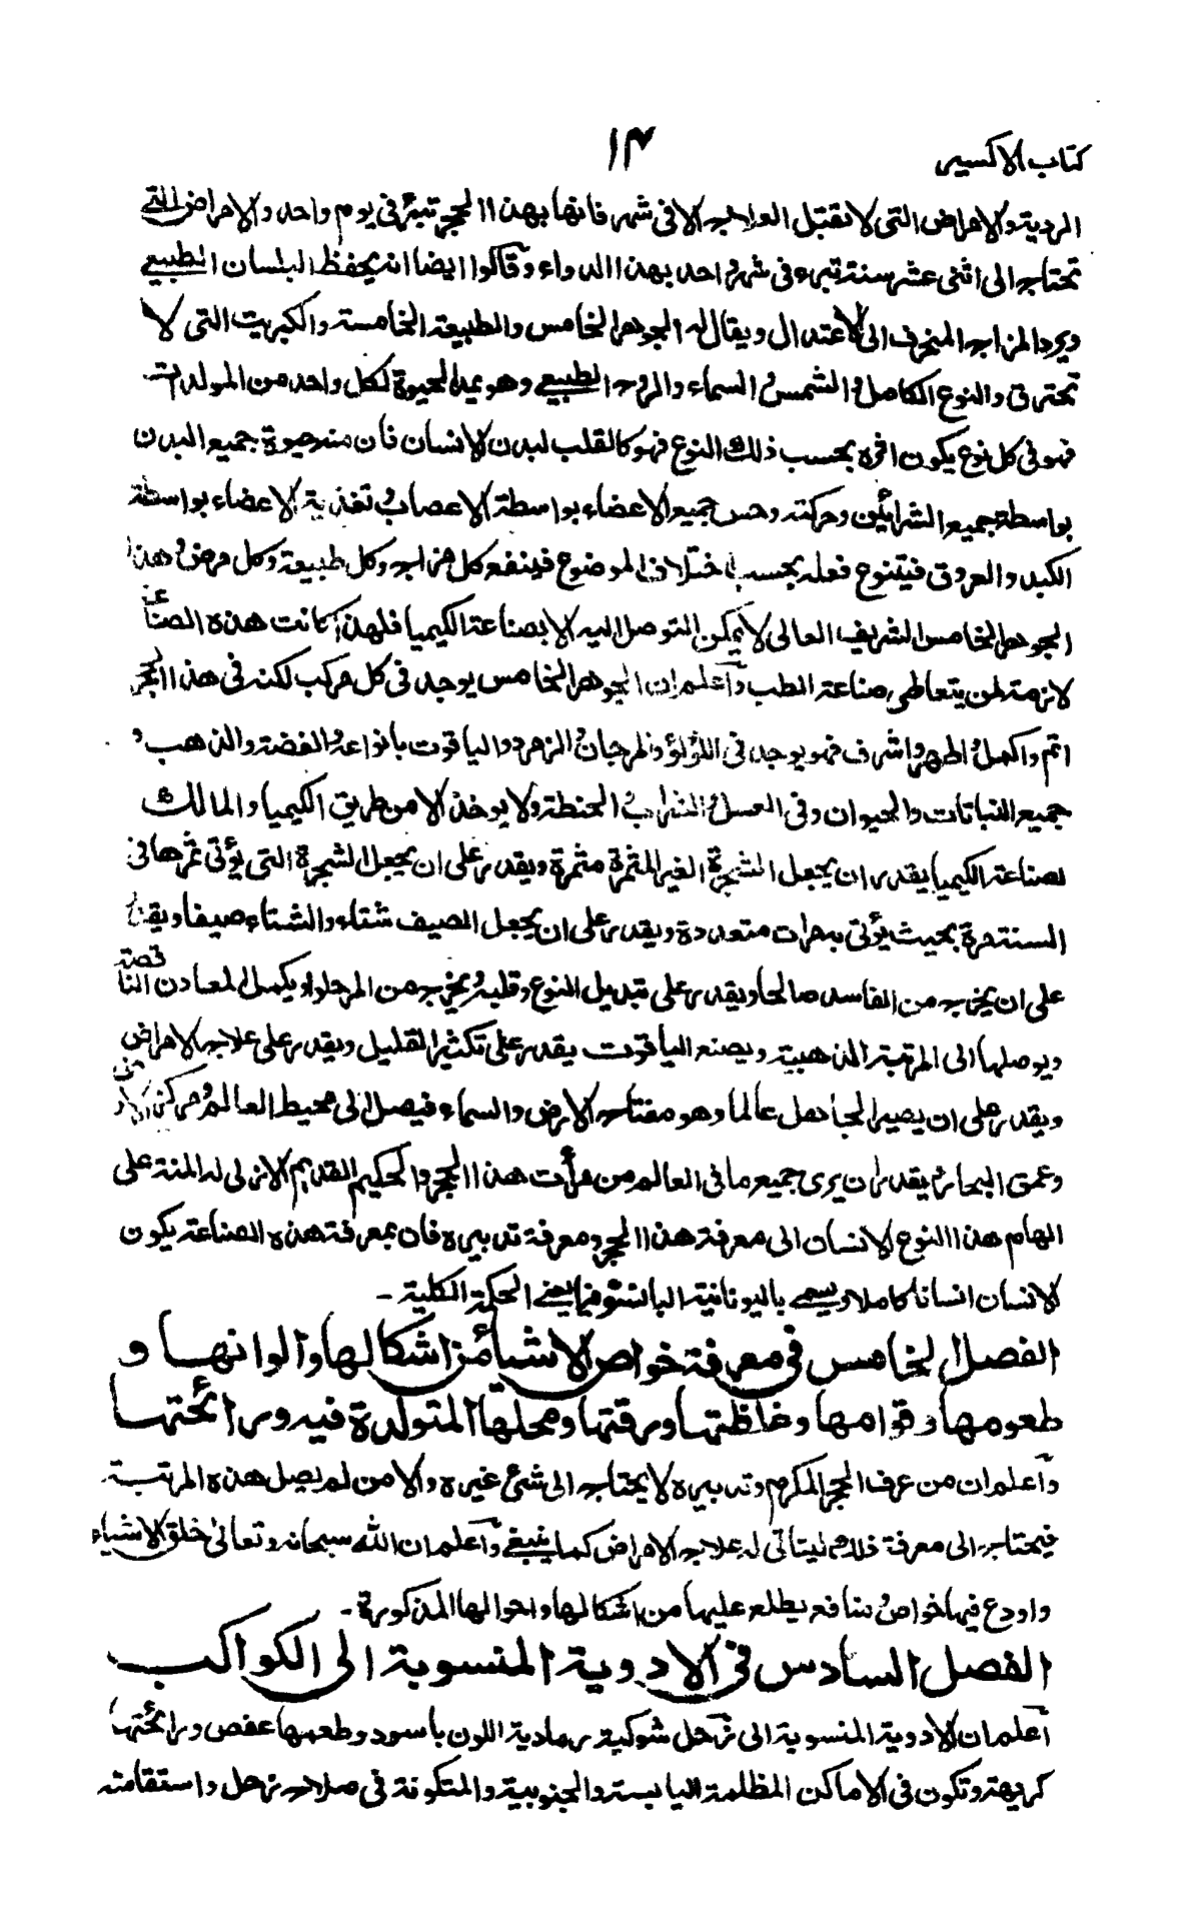 كتاب الاكسير
١٣
الردية والامراض التى لا تقبل العلاج الا فى شهر فانها بهذا الحجر تبرئ فى يوم واحد والامراض التى
تحتاج الى اثنى عشر سنة تبرء فى شهر واحد بهذا الدواء وقالوا ايضا انه يحفظ البلسان الطبيعى
ويرد المزاج المنحرف الى الاعتدال ويقال له الجوهر الخامس والطبيعة الخامسة والكبريت التى لا
تحترق والنوع الكامل والشمس والسماء والروح الطبيعى وهو يمد الحيوة لكل واحد من المولدات
فهو فى كل نوع يكون اثره بحسب ذلك النوع فهو كالقلب لبدن الانسان فان منه حيوة جميع البدن
بواسطة جميع الشرائين وحركته وحس جميع الاعضاء بواسطة الاعصاب وتغذية الاعضاء بواسطة
الكبد والعروق فيتنوع فعله بحسب اختلاف الموضوع فينفع كل مزاج وكل طبيعة وكل مرض وهذا
الجوهر الخامس الشريف العالى لا يمكن التوصل اليه الا بصناعة الكيميا فلهذا كانت هذه الصناعة
لازمة لمن يتعاطى صناعة الطب وآعلم ان الجوهر الخامس يوجد فى كل مركب لكنه فى هذا الحجر
اتم واكمل واطهر واشرف فهو يوجد فى اللؤلؤ والمرجان والزمرد والياقوت بانواعه والفضة والذهب و
جميع النباتات والحيوان وفى العسل والشراب والحنطة ولا يوخذ الا من طريق الكيميا والمالك
لصناعة الكيميا يقدر ان يجعل الشجرة الغير المثمرة مثمرة ويقدر على ان يجعل الشجرة التى يؤتى ثمرها فى
السنة مرة بحيث يؤتى به مرات متعددة ويقدر على ان يجعل الصيف شتاء والشتاء صيفا ويقدر
على ان يخرج من الفاسد صالحا ويقدر على تبديل النوع وقلبه ويخرج من المر حلوا ويكمل المعادن الناقصة
ويوصلها الى المرتبة الذهبية ويصنع الياقوت يقدر على تكثير القليل ويقدر على علاج الامراض
ويقدر على ان يصير الجاهل عالما وهو مفتاح الارض والسماء فيصل الى محيط العالم ومركز الارض
وعمق البحائر يقدر ان يرى جميع ما فى العالم من مرأت هذا الحجر والحكيم القديم الازلى له المنة على
الهام هذا النوع الانسان الى معرفة هذا الحجر ومعرفة تدبيره فان بمعرفة هذه الصناعة يكون
الانسان انسانا كاملا ويسمى باليونانية يعنى الحكمة الكلية -
الفصل الخامس فى معرفة خواص الاشيا من اشكالها والوانها و
طعومها وقوامها وغلظتها ورقتها ومحلها المتولدة فيه ورائحتها
وآعلم ان من عرف الحجر المكرم وتدبيره لا يحتاج الى شئ غيره والا من لم يصل هذه المرتبة
فيحتاج الى معرفة ليتاتى له علاج الامراض كما ينبغى وآعلم ان الله سبحانه وتعالى خلق الاشياء
واودع فيها خواص ومنافع يطلع عليها من اشكالها واحوالها المذكورة -
الفصل السادس فى الادوية المنسوبة الى الكواكب
آعلم ان الادوية المنسوبة الى زحل شوكية رمادية اللون باسود وطعمها عفص ورائحتها
كريهة وتكون فى الاماكن المظلمة اليابسة والجنوبية والمتكونة فى صلاح زحل واستقامته